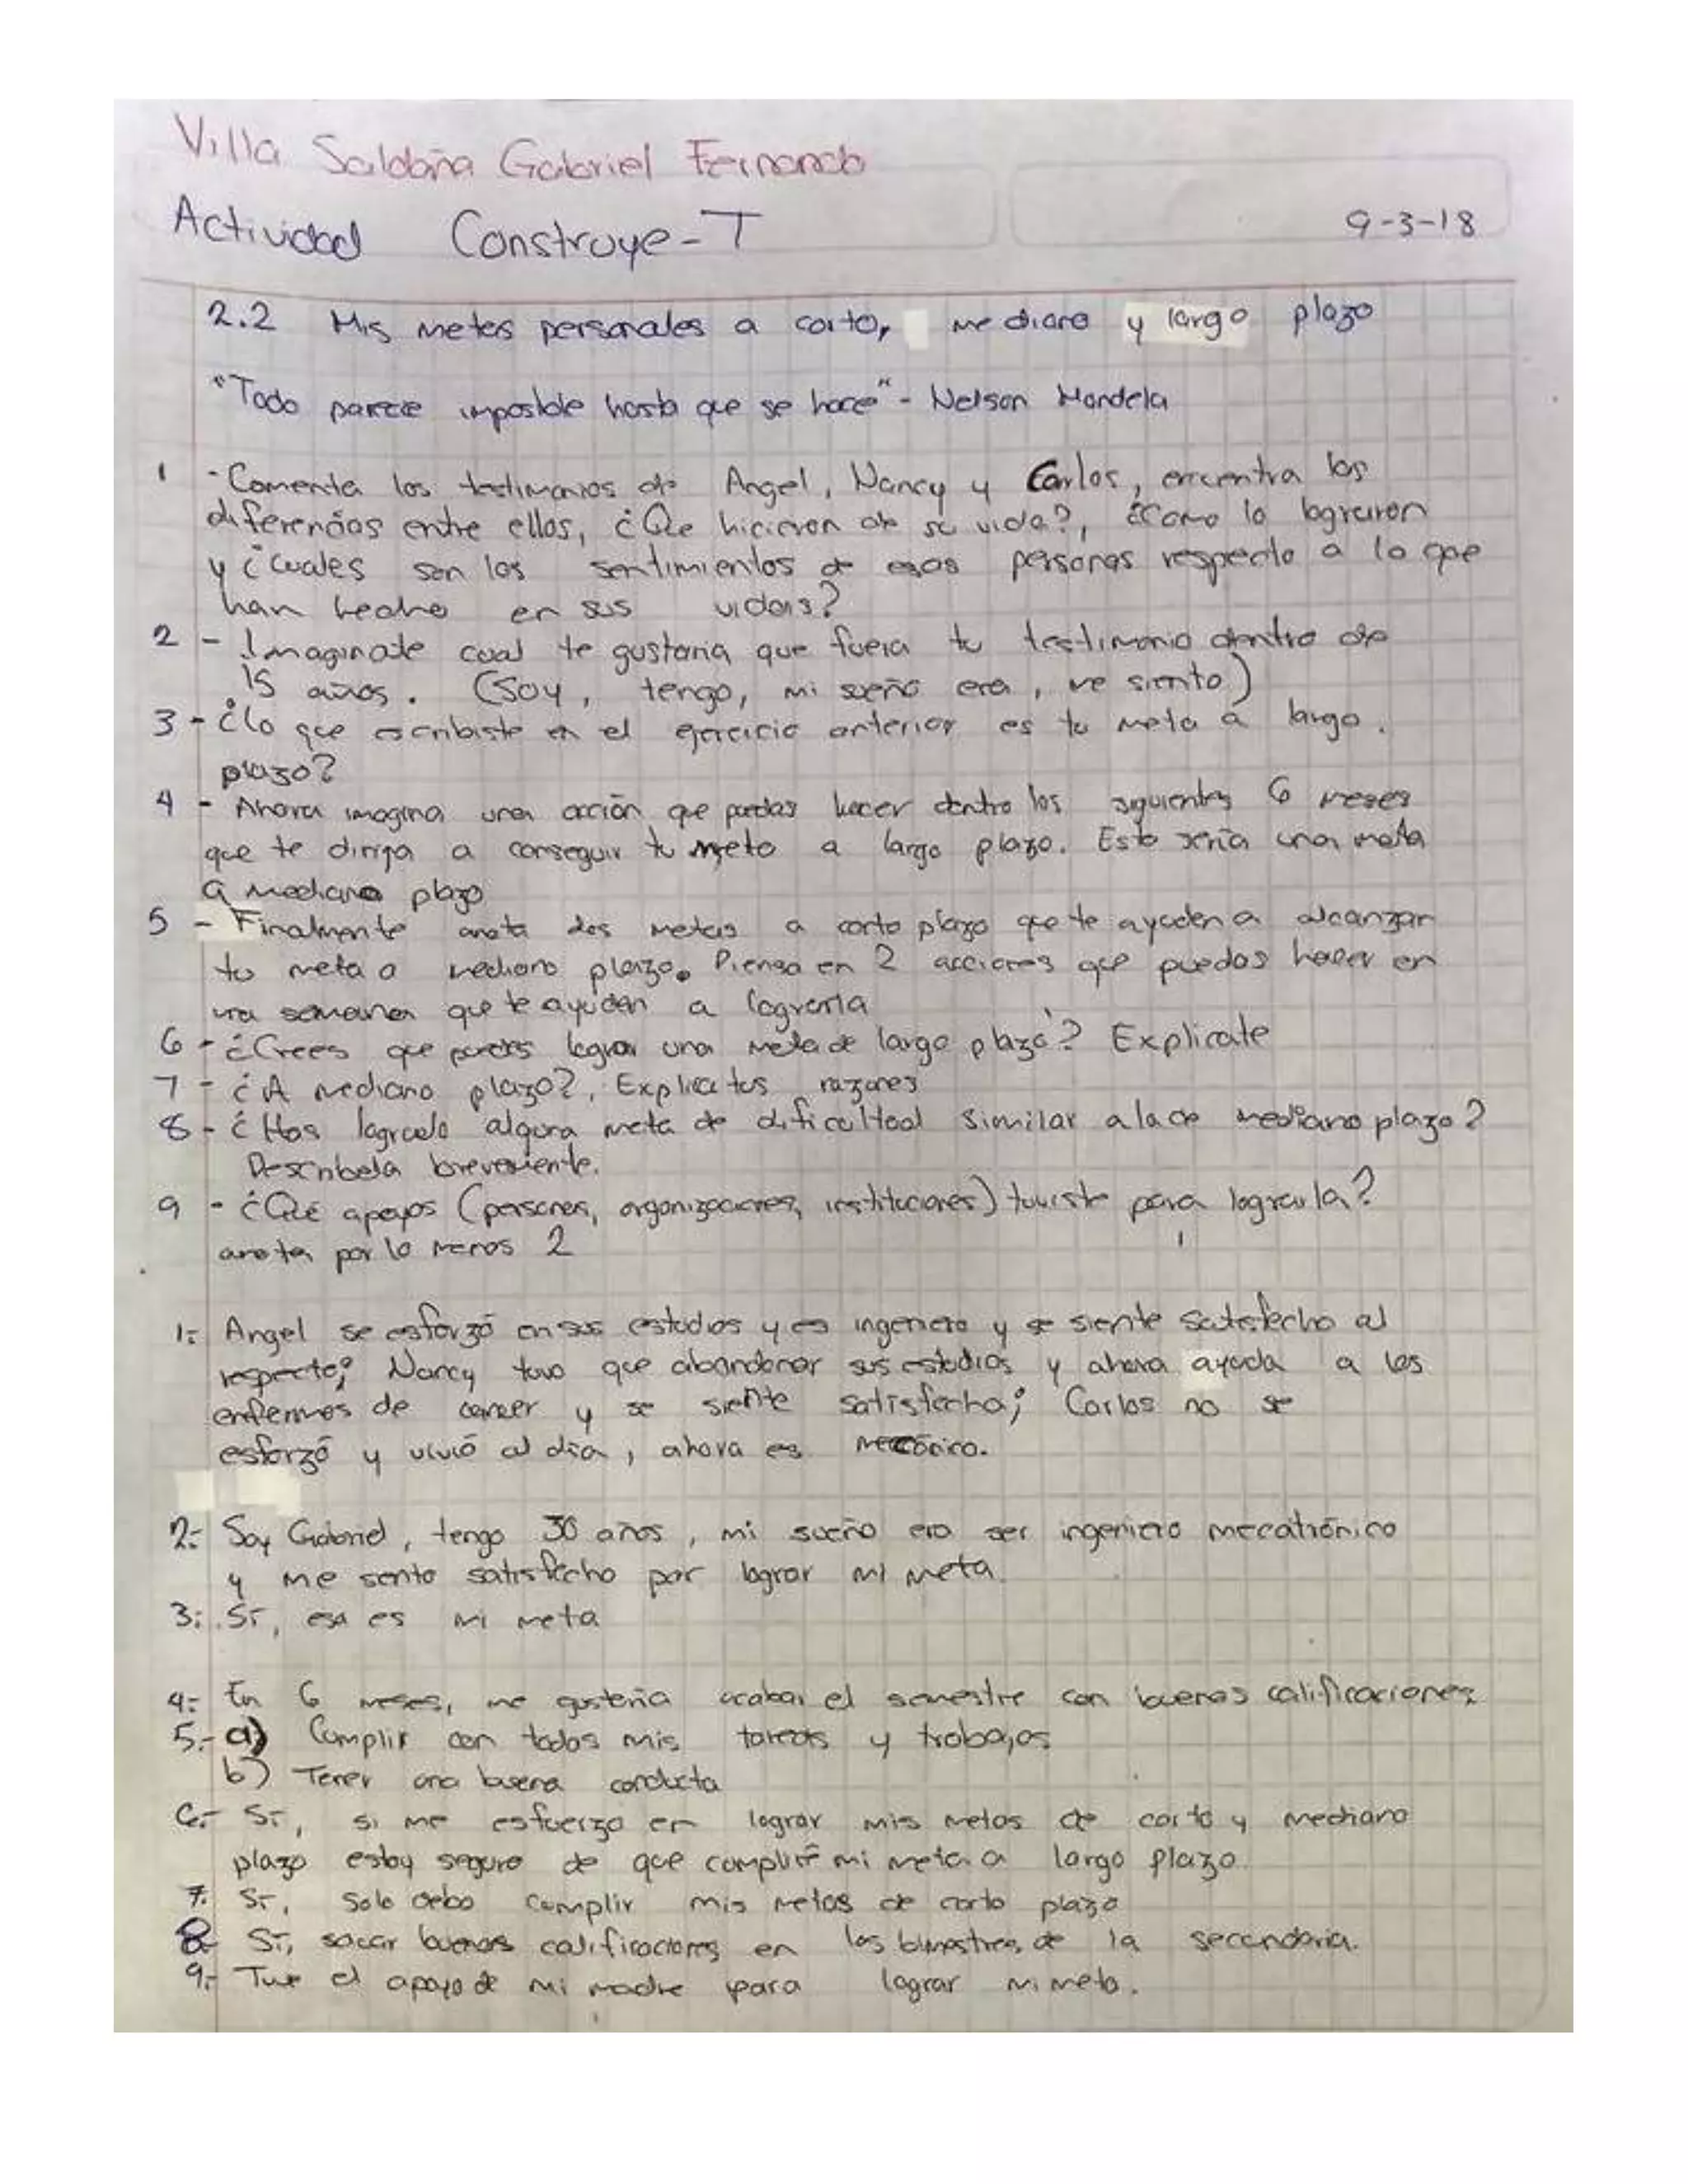 Villa Saldaña Gabriel Fernando
Actividad Construye-T 9-3-18
2.2 Mis metas personales a corto, mediano y largo plazo
"Todo parece imposible hasta que se hace" - Nelson Mandela
1 - Comenta los testimonios de Angel, Nancy y Carlos, encuentra las
diferencias entre ellos, ¿Que hicieron de su vida?, ¿Como lo lograron
y ¿Cuales son los sentimientos de esas personas respecto a lo que
han hecho en sus vidas?
2 - Imaginate cual te gustaria que fuera tu testimonio dentro de
15 años. (Soy, tengo, mi sueño era, me siento)
3 - ¿Lo que escribiste en el ejercicio anterior es tu meta a largo
plazo?
4 - Ahora imagina una acción que puedas hacer dentro los siguientes 6 meses
que te dirija a conseguir tu meta a largo plazo. Esto sería una meta
a mediano plazo
5 - Finalmente anota dos metas a corto plazo que te ayuden a alcanzar
tu meta a mediano plazo. Piensa en 2 acciones que puedas hacer en
una semana que te ayuden a lograrla
6 - ¿Crees que puedes lograr una meta de largo plazo? Explicate
7 - ¿A mediano plazo?, Explica tus razones
8 - ¿Has logrado alguna meta de dificultad similar a la de mediano plazo?
Describela brevemente.
9 - ¿Qué apoyos (personas, organizaciones, instituciones) tuviste para lograrla?
anota por lo menos 2
1.- Angel se esforzó en sus estudios y es ingeniero y se siente satisfecho al
respecto; Nancy tuvo que abandonar sus estudios y ahora ayuda a los
enfermos de cancer y se siente satisfecha; Carlos no se
esforzó y vivió al día, ahora es mecánico.
2.- Soy Gabriel, tengo 30 años, mi sueño era ser ingeniero mecatrónico
y me siento satisfecho por lograr mi meta.
3.- Sí, esa es mi meta
4.- En 6 meses, me gustaría acabar el semestre con buenas calificaciones
5.- a) Cumplir con todos mis tareas y trabajos
b) Tener una buena conducta
6.- Sí, si me esfuerzo en lograr mis metas de corto y mediano
plazo estoy seguro de que cumpliré mi meta a largo plazo.
7. Sí, solo debo cumplir mis metas de corto plazo
8- Sí, sacar buenas calificaciones en los bimestres de la secundaria.
9.- Tuve el apoyo de mi madre para lograr mi meta.